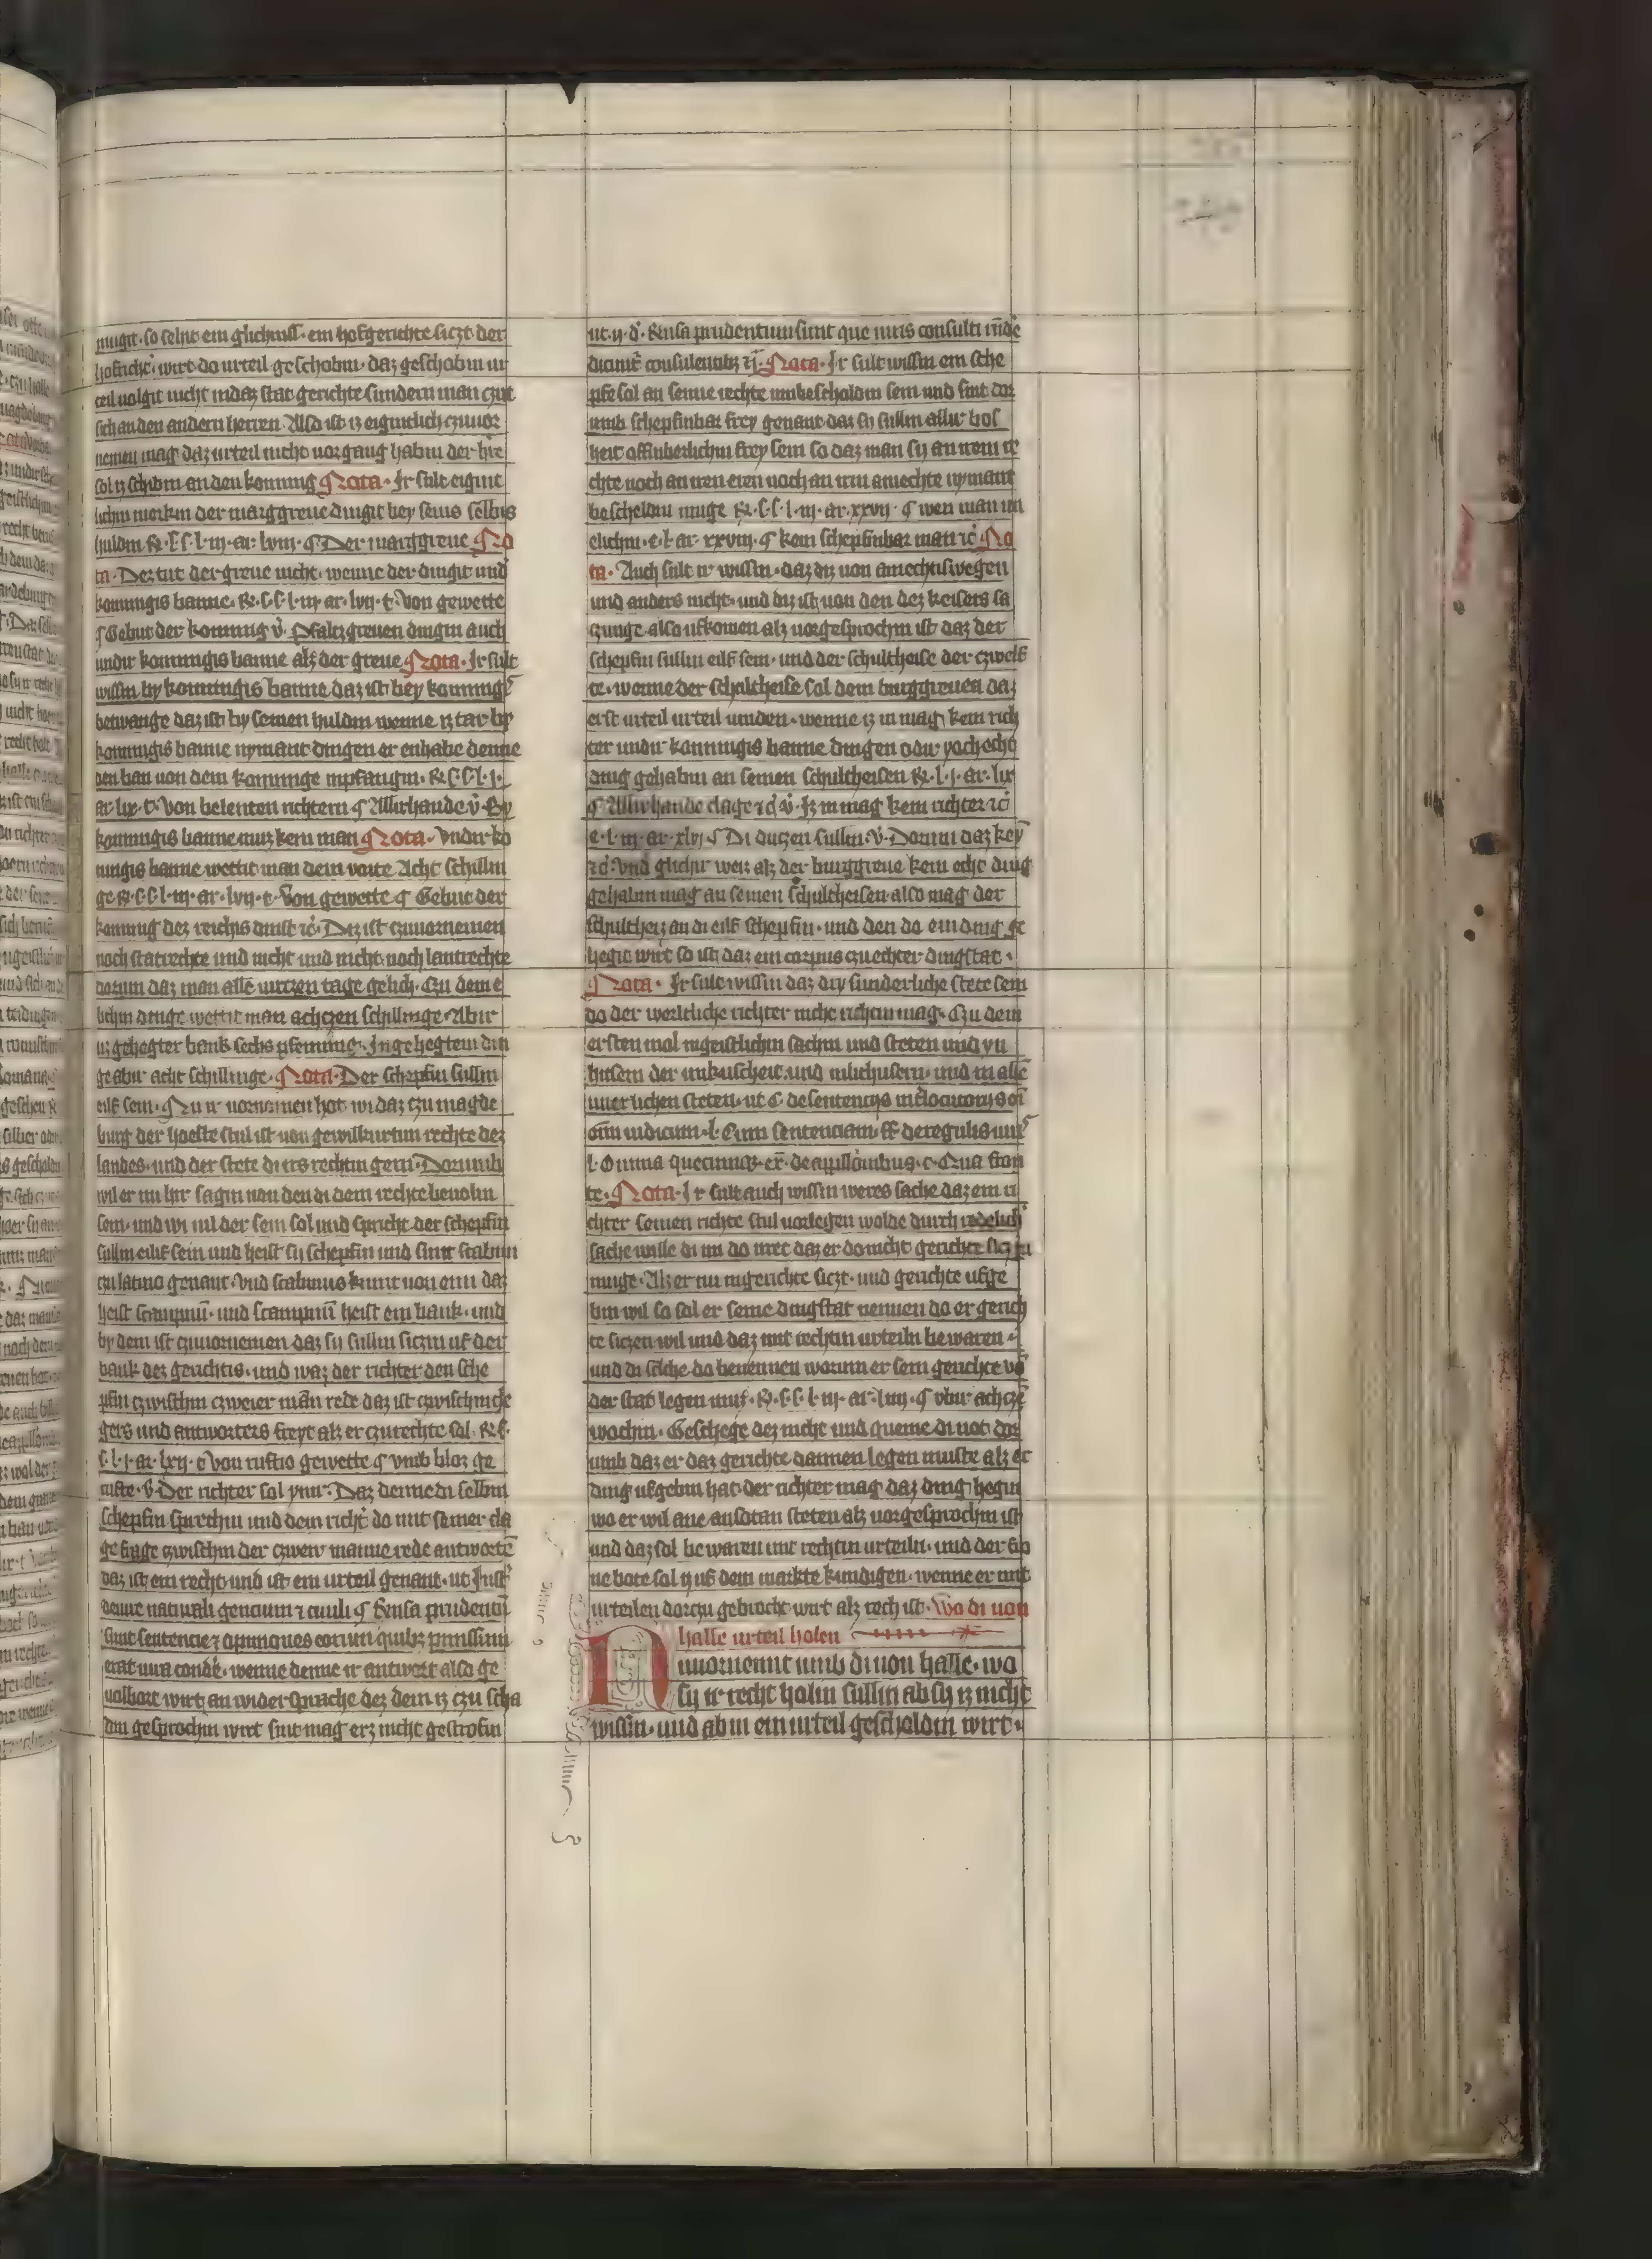 mugit · so selut ein glichniss · ein hofgerichte siczt der
hofricht' · wirt do urteil geschobin · daz geschobin ur
teil volgit nicht in daz stat gerichte sundern man czut
sich an den andern herren Also ist iz eigintlich czuuor
nemen mag daz urteil nicht vorgang habin der hre
sol iz schibin an den konning Nota · Ir sult eigint
lichin merkin der marggreue dingit bey sines selbis
huldin R · s · s · l · iij · ar · lviij · ¶ Der marggreue No
ta · Dez tut der greue nicht · wenne der dingit undir
konningis banne · R · s · s · l · iij · ar · lvij · t · Von gewette
¶ Gebut der konning v̊ · Pfalczgreuen dingin auch
undir konningis banne alz der greue Nota · Ir sult
wissin by konningis banne daz ist bey konningis
betwange daz ist by seinen huldin wenne iz tar by
konningis banne nymant dingen er enhabe denne
den ban von dem konninge inpfangin · R · s · s · l · j ·
ar · lix · t · Von belenten richtern ¶ Allirhande v̊ · By
konningis banne muz kein man Nota · Vndir ko
ningis banne wettit man dem voite Acht schillin
ge R · s · s · l · iij · ar · lvij · t · Von gewette ¶ Gebut der
konning dez reichis dinst ic̊ · Diz ist czuuornemen
noch statrechte und nicht und nicht noch lantrechte
dorum daz man alle virczen tage gelich · Czu dem e
lichin dinge wettit man achczen schillinge · Abir
in gehegter bank sechs pfenninge · In gehegtem din
ge abir acht schillinge · Nota · Der schepfin sullin
eilf sein · Nu ir vornomen hat wi daz czu magde
burg der hoeste stul ist von gewilkurtin rechte dez
landes · und der stete di irs rechtin gern · Dorumb
wil er nu hir sagin von den di dem rechte beuolin
sein · und wi uil der sein sol und spricht der schepfin
sullin eilif sein und heist sy schepfin und sint scabini
czu latino genant · Vnd scabinus kumt von eim daz
heist scampnu͂ · und scampnu͂ heist ein bank · und
by dem ist czuuornemen daz sy sullin siczin uf der
bank dez gerichtis · und waz der richter den sche
pfin czwischin czweier man rede daz ist czwischin cle
gers und antworters freyt alz er czurechte sol · R · s ·
s · l · j · ar · lxij · t Von ruftio gewette ¶ Vmb bloz ge
rufte · v̊ Der richter sol ynn · Daz denne di selbin
schepfin sprechin und dem richt' do mit seiner cla
ge frage czwischin der czweir manne rede antworte͂
daz ist ein recht und ist ein urteil genant · ut Insti
de iure naturali gencium ⁊ ciuili ¶ Rensa prudentu͂
sunt sentencie ⁊ opiniones eorum quibz pmissum
erat iura conde · wenne denne ir antwert also ge
volbort wirt an widersprache dez dem iz czu scha
din gesprochin wirt sint mag erz nicht gestrofin
ut · ij · d̊ · Rensa prudentium sunt que iuris consulti in͂de
dicunt' consulentibz ⁊j̄ · Nota · Ir sult wissin ein sche
pfe sol an seime rechte unbescholdin sein und sint dor
umb schepfinbar frey genant daz sy sullin allir bos
heit offinberlichin frey sein so daz man sy an irem re
chte noch an iren eren noch an irm amechte nymant
bescheldin muge R · s · s · l · iij · ar · xxvij · ¶ wen man un
elichin · e · l · ar · xxviij · ¶ kein schepfinbar man ic̊ No
ta · Auch sult ir wissin · daz diz von amechtiswegen
und anders nicht · und diz ist von den dez keisers sa
czunge also ufkomen alz vorgesprochin ist daz der
schepfin sullin eilf sein · und der schultheise der czwelf
te · wenne der schultheise sol dem burggreuen daz
erst urteil urteil vinden · wenne iz in mag kein rich
ter undir konningis banne dingen odir yoch echt
ding gehabin an seinen schultheisen R · l · j · ar · lix
¶ Allirhande clage ⁊d̊ v̊ · Iz in mag kein richter ic̊
e · l · iij · ar · xlvj ¶ Di duczen sullin · v̊ · Dorum daz key
⁊d̊ · Vnd glichir weiz alz der burggreue kein echt ding
gehabin mag an seinen schultheisen also mag der
schultheiz an di eilf schepfin · und den do ein ding ge
hegit wirt so ist daz ein corpus czu echter dingstat ·
Nota · Ir sult wissin daz dry sunderliche stete sein
do der werltliche richter nicht richtin mag · Czu dem
ersten mol in geistlichin sachin und steten und yn
husern der unkuscheit · und in lichusern · und in alle
unerlichen steten · ut C de sentencijs interlocutorijs o͂i
om iudicum · l · Cum sentenciam · ff de regulis iur'
l · Omnia quecunq͂ · ex̄ · de appellacionibus · c · Qua fron
te · Nota · Ir sult auch wissin weres sache daz ein ri
chter seinen richte stul vorlegen wolde durch redelich
sache wille di im do irret daz er do nicht gerichte siczen
muge · Alz er nu in gerichte siczt · und gerichte ufge
bin wil so sol er seine dingstat nennen do er gerich
te siczen wil und daz mit rechtin urteiln bewaren ·
und di sache do benennen worum er sein gerichte vo͂
der stat legen mus · R · s · s · l · iij · ar · lxiij · ¶ vbir achcze͂
wochin · Geschege dez nicht und queme di not dor
umb daz er daz gerichte dannen legen muste alz er
ding ufgebin hat · der richter mag daz ding hegin
wo er wil ane an sotan steten alz vorgesprochin ist
und daz sol bewaren mit rechtin urteiln · und der fro
ne bote sol iz uf dem markte kundigen · wenne er mit
urteilen dorczu gebrocht wirt alz rech ist · Wo di von
halle urteil holen
Nuuornemt umb di von halle · wo
sy ir recht holin sullin ab sy iz nicht
wissin · und ab in ein urteil gescholdin wirt ·